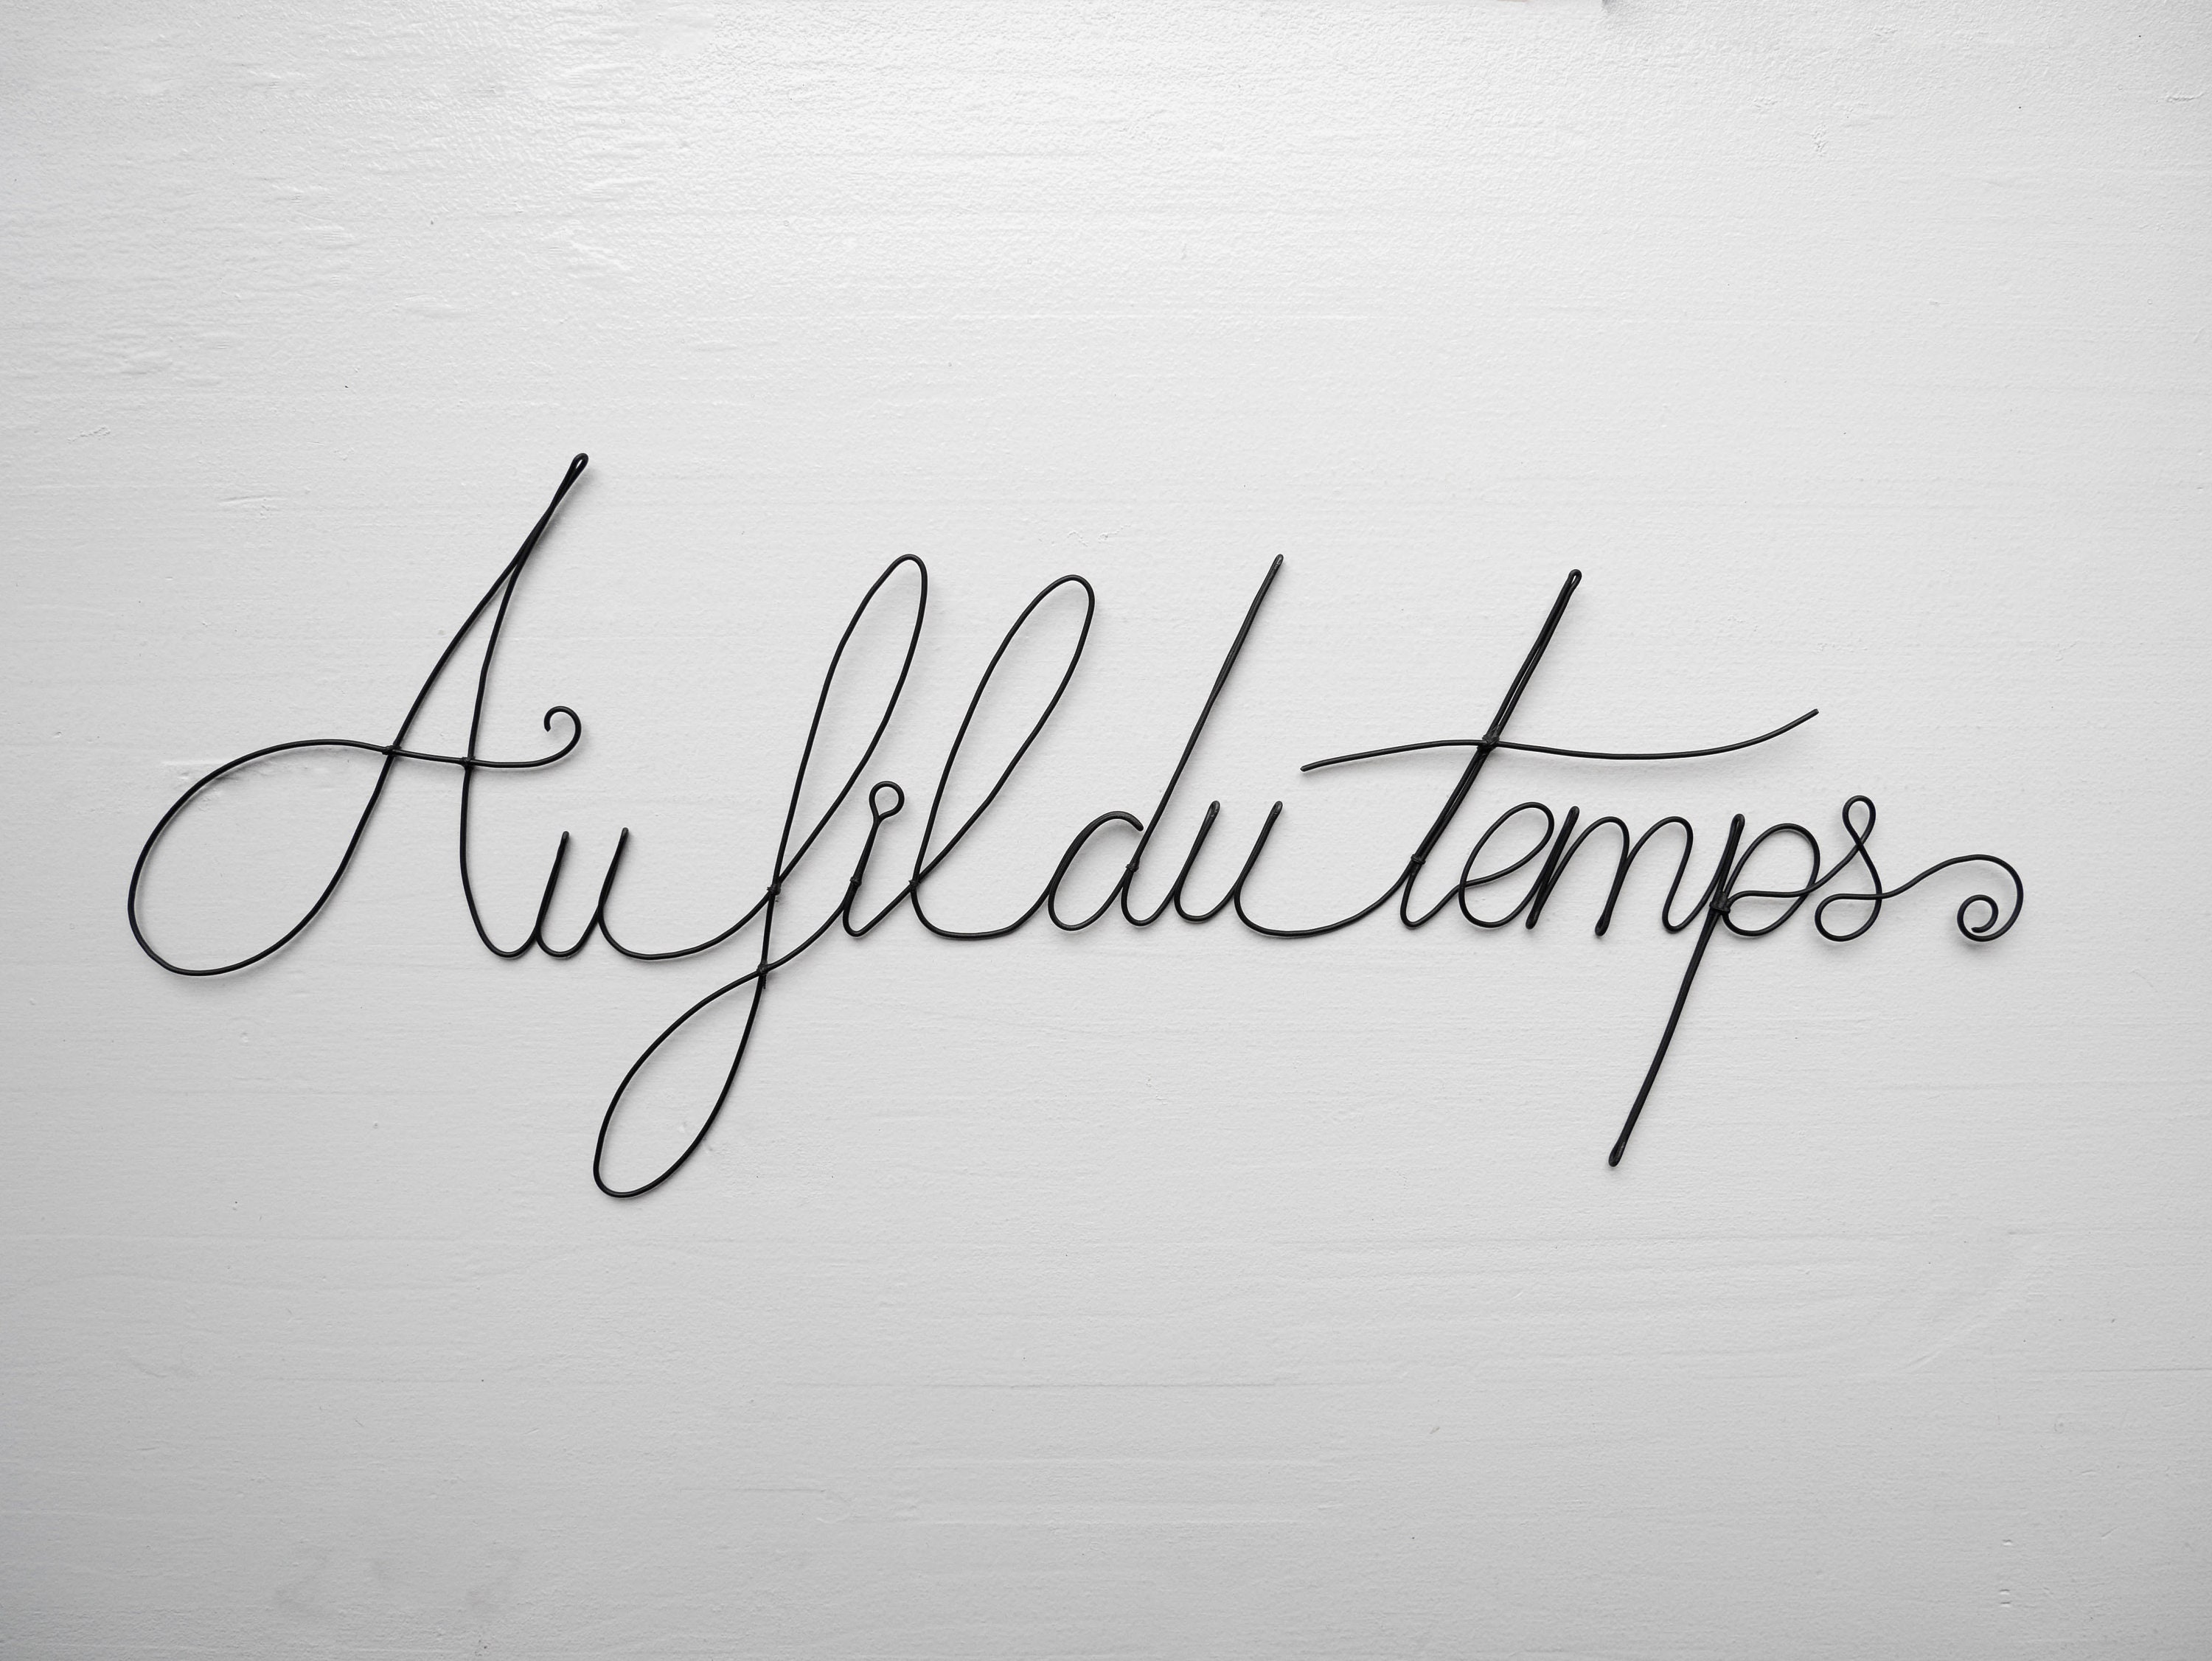 Au fil du temps